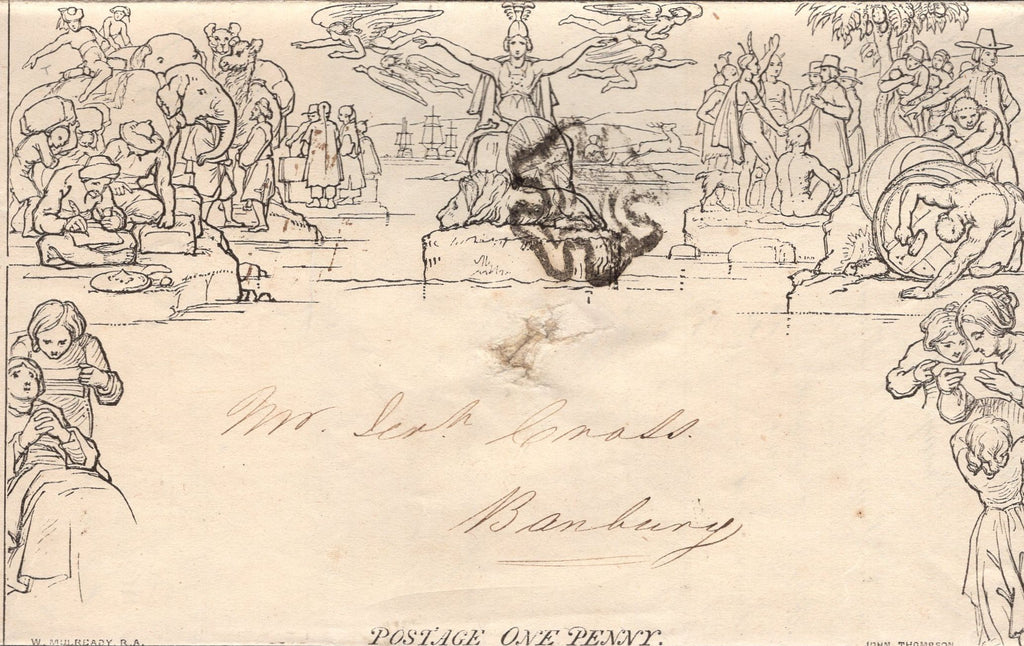 Mr. Jerh. Cross.
Banbury
W. MULREADY, R.A.
POSTAGE ONE PENNY.
JOHN THOMPSON